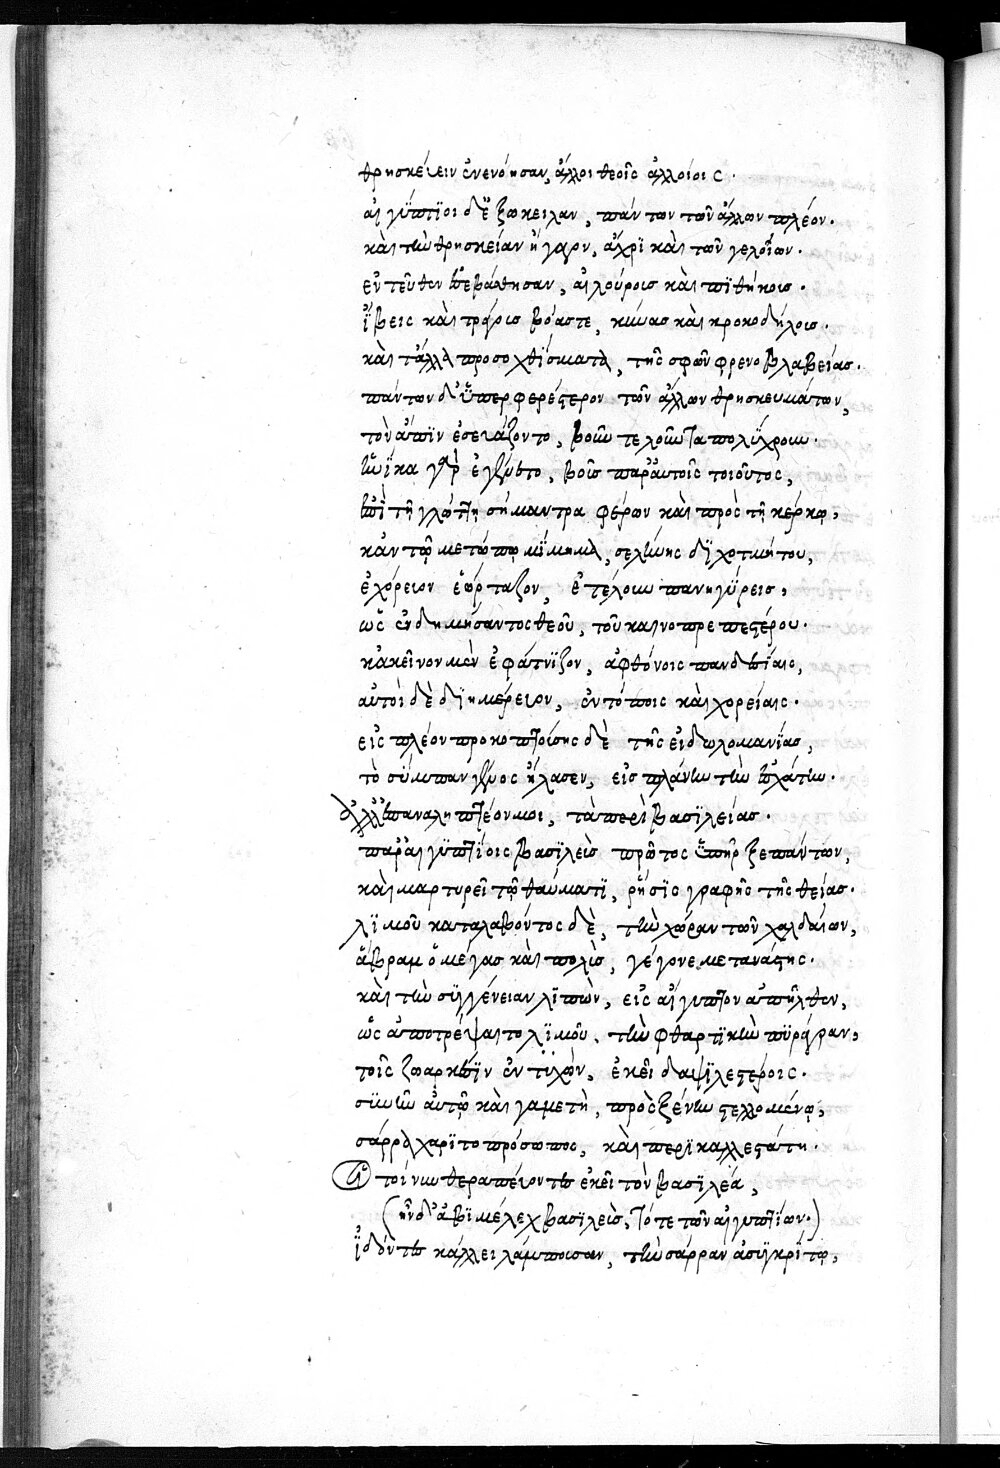 θρησκεύειν ἐνενόησαν, ἄλλοι θεοῖς ἀλλοίοις.
αἰγύπτϊοι δ' ἐξώκειλαν, πάντων τῶν ἄλλων πλέον.
καὶ τὴν θρησκείαν ἤγαγον, ἄχρϊ καὶ τῶν γελοίων.
ἐντεῦθεν ἐσεβάσθησαν, αἰλούροις καὶ πϊθήκοις.
ἴβεις καὶ τράγοις βόας τε, κύνας καὶ κροκοδήλοις.
καὶ τἄλλα προσοχθίσματα, τῆς σφῶν φρενοβλαβείας.
πάντων δ' ὑπερφερέστερον τῶν ἄλλων θρησκευμάτων,
τὸν ἄπϊν ἐσεβάζοντο, βοῦν τελοῦντα πολύχρουν.
ἡνίκα γὰρ ἐγένετο, βοῦς παρ' αὐτοῖς τοιοῦτος,
ἐπὶ τῇ γλώττῃ σήμαντρα φέρων καὶ πρὸς τῇ κέρκῳ,
κἀν τῷ μετώπῳ μίμημα, σελήνης δϊχοτμήτου,
ἐχόρευον ἑώρταζον, ἐτέλουν πανηγύρεις,
ὡς ἐνδημήσαντος θεοῦ, τοῦ καινοπρεπεστέρου.
κἀκεῖνον μὲν ἐφάτνϊζον, ἀφθόνοις πανδεσίαις,
αὐτοὶ δὲ δϊημέρευον, ἐν πότοις καὶ χορείαις.
εἰς πλέον προκοπτούσης δὲ τῆς εἰδωλομανίας,
τὸ σύμπαν γένος ἤλασεν, εἰς πλάνην τὴν ἐσχάτην.
ἀλλ' ἐπαναληπτέον μοι, τὰ περὶ βασϊλείας.
παρ' αἰγϋπτίοις βασϊλεὺς πρῶτος ὑπῆρξε πάντων,
καὶ μαρτυρεῖ τῷ θαύματϊ, ῥῆσϊς γραφῆς τῆς θείας.
λϊμοῦ καταλαβόντος δὲ, τὴν χώραν τῶν χαλδαίων,
ἄβραμ ὁ μέγας καὶ πολὺς, γέγονε μετανάστης.
καὶ τὴν σϋγγένειαν λϊπὼν, εἰς αἴγυπτον ἀπῆλθεν,
ὡς ἀποτρέψαιτο λϊμοῦ, τὴν φθαρτϊκὴν πϋράγραν,
τοῖς ζωαρκέσϊν ἐντϋχὼν, ἐκεῖ δαψϊλεστέροις.
σϋνῆν αὐτῷ καὶ γαμετὴ, πρὸς ξένην στελλομένῳ,
σάρρα χαρϊτοπρόσωπος, καὶ περϊκαλλεστάτη.
οἱ τοίνυν θεραπεύοντες ἐκεῖ τὸν βασϊλέα,
(ἦν δ' ἀβϊμέλεχ βασϊλεὺς, τότε τῶν αἰγυπτίων.)
ἰδόντες κάλλει λάμπουσαν, τὴν σάρραν ἀσϋγκρίτῳ,